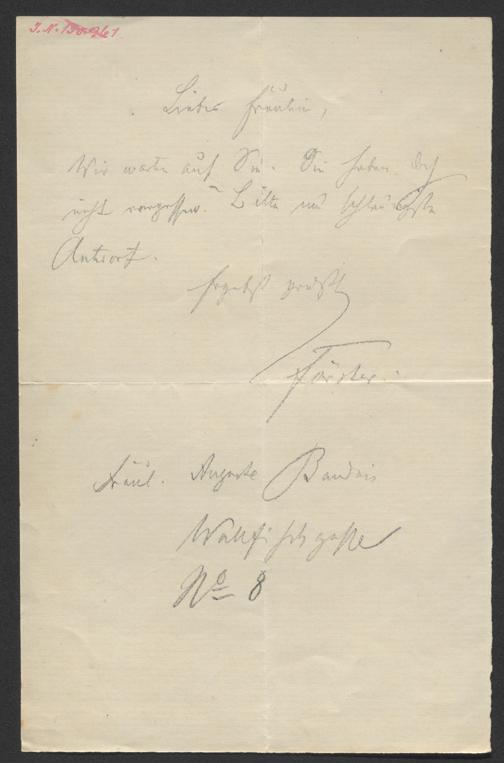 J. N. 130.961
Liebes Fräulein,
Wir warten auf Sie. Sie haben doch
nicht vergessen? Bitte um schleunigste
Antwort.
Ergebenst grüßt
Förster.
Fräul. Auguste Baudius
Wallfischgasse
No 8